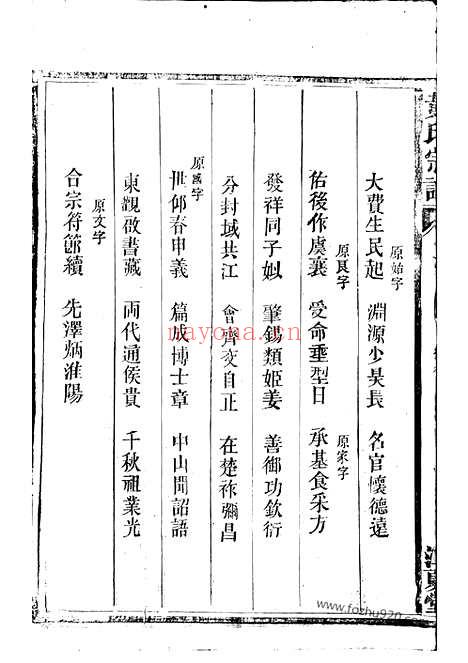 黃氏宗譜
江夏堂
原始字
大費生民起 淵源少昊長 名官懷德遠
原良字 原家字
佑後作虞襄 受命垂型日 承基食采方
發祥同子姒 肇錫類姬姜 善御功欽衍
分封域共江 會齊交自正 在楚祚彌昌
原國字
世仰春申義 篇成博士章 中山聞詔語
東觀啟書藏 兩代通侯貴 千秋祖業光
原文字
合宗符節續 先澤炳淮陽
nayona.cn
www.fozhu920.com